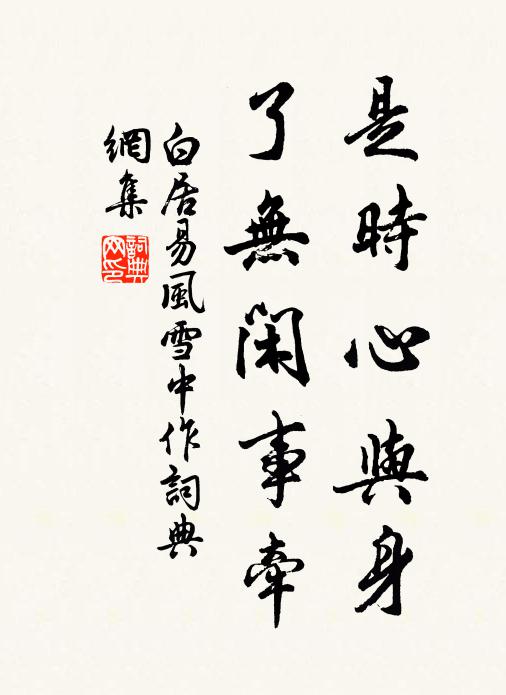 是時心與身
了無閑事牽
白居易風雪中作詞典
網集
詞典网印